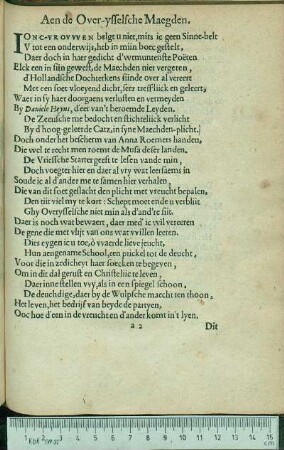 Aen de Over-ysselsche Maegden.
IONC-VROVVEN belgt u niet, mits ic geen Sinne-belt
V tot een onderwijs, heb in mijn boec gestelt,
Daer doch in haer gedicht d'vermuntenste Poëten
Elck een in sijn gewest, de Maechden niet vergeten,
d'Hollandsche Dochterkens sijnde over al vereert
Met een soet vloeyend dicht, seer treffliick en geleert;
Waer in sy haer doorgaens verlusten en vermeyden
By Daniele Heyns, d'eer van't beroemde Leyden.
De Zeeusche me bedocht en stichtelick verlicht
By d'hoog-geleerde Catz, in syne Maechden-plicht.
Doch onder het bescherm van Anna Roemers handen,
Die wel te recht men roemt de Musa deser landen,
De Vriessche Starter geeft te lesen vande min,
Doch voegter hier en daer al vry wat leersaems in
Sonde ic al d'ander me te samen hier verhalen,
Die van dit soet geslacht den plicht met vreucht bepalen,
Den tijt viel my te kort: Schept moet ende u verbliit
Ghy Overysselsche niet min als d'and're siit.
Daer is noch wat bewaert, daer med' ic wil vereeren
De gene die met vlijt van ons wat willen leeren.
Dies eygen ic u toe, ô waerde lieve jeucht,
Hun aengename School, een prickel tot de deucht,
Voor die in zedicheyt haer soecken te begeven,
Om in dit dal gerust en Christeliic te leven,
Daer inne stellen wy, als in een spiegel schoon,
De deuchdige, daer by de Wulpsche maecht ten thoon,
Het leven, het bedrijf van beyde de partyen,
Ooc hoe d'een in de vreuchten d'ander komt in't lyen.
a 2
Dit